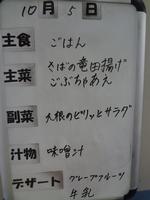 10月5日
主食 ごはん
主菜 さばの竜田揚げ
ごぶちゃあえ
副菜 大根のピリッとサラダ
汁物 味噌汁
デザート グレープフルーツ
牛乳